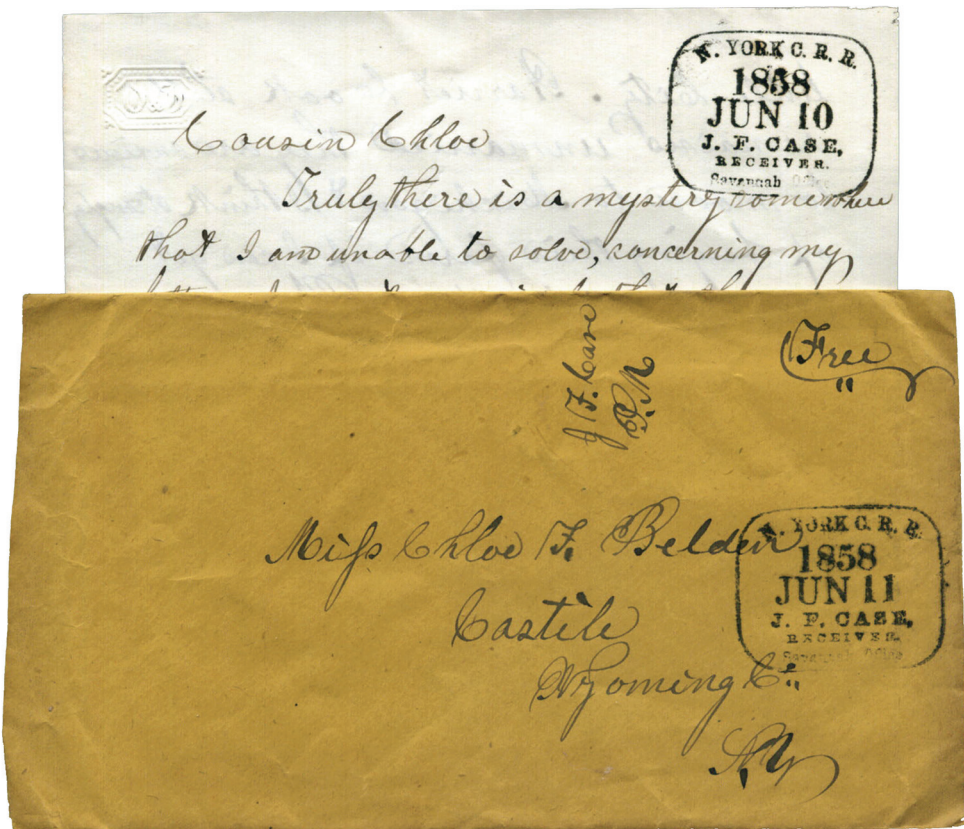 N. YORK C. R. R.
1858
JUN 10
J. F. CASE,
RECEIVER.
Savannah Office
Cousin Chloe
Truly there is a mystery somewhere
that I am unable to solve, concerning my
Free
J. F. Case
P. M
Miss Chloe F. Belden
Castile
Wyoming Co.
N. Y
N. YORK C. R. R.
1858
JUN 11
J. F. CASE,
RECEIVER.
Savannah Office